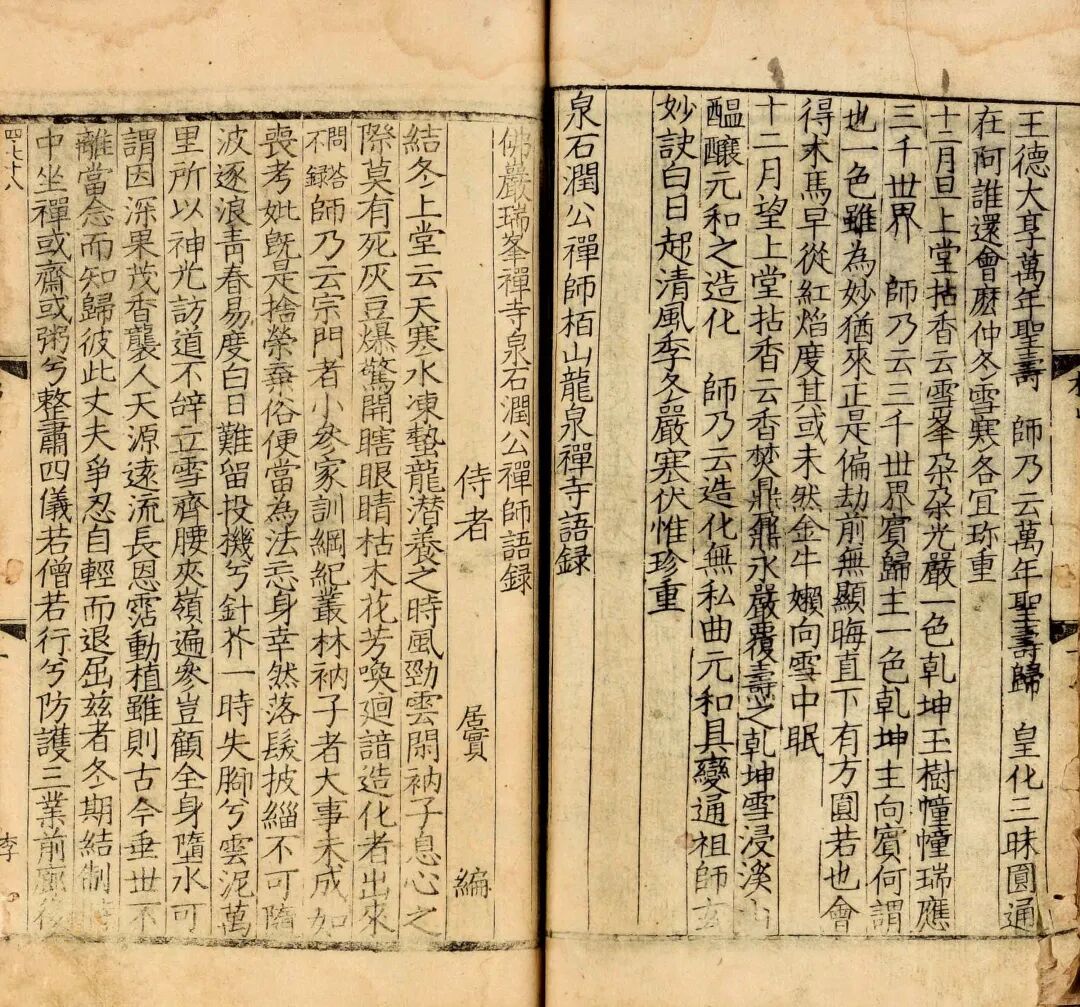 王德大享萬年聖壽　師乃云萬年聖壽歸　皇化三昧圓通
在阿誰還會麽仲冬雪寒各宜珎重
十二月旦上堂拈香云雪峯朶朶光嚴一色乹坤玉樹幢幢瑞應
三千世界　師乃云三千世界賔歸主一色乹坤主向賔何謂
也一色雖為妙猶來正是偏劫前無顯晦直下有方圓若也會
得木馬早從紅焰度其或未然金牛嬾向雪中眠
十二月望上堂拈香云香焚鼎鼐永嚴覆壽之乹坤雪浸溪山
醖釀元和之造化　師乃云造化無私曲元和具變通祖師玄
妙訣白日起清風季冬嚴寒伏惟珍重
泉石潤公禪師栢山龍泉禪寺語録
佛嚴瑞峯禪寺泉石潤公禪師語録
侍者　居實　編
結冬上堂云天寒水凍蟄龍潜養之時風勁雲閑衲子息心之
際莫有死灰豆爆驚開瞎眼睛枯木花芳喚廻諳造化者出來
問荅不録師乃云宗門者小叅家訓綱紀叢林衲子者大事未成如
喪考妣旣是捨榮棄俗便當為法忘身幸然落髮披緇不可隨
波逐浪青春易度白日難留投機兮針芥一時失脚兮雲泥萬
里所以神光訪道不辝立雪齊腰夾嶺遍叅豈顧全身墮水可
謂因深果茂香襲人天源遠流長恩霑動植雖則古今垂世不
離當念而知歸彼此丈夫爭忍自輕而退屈兹者冬期結制
中坐禪或齋或粥兮整肅四儀若僧若行兮防護三業前廊後
李